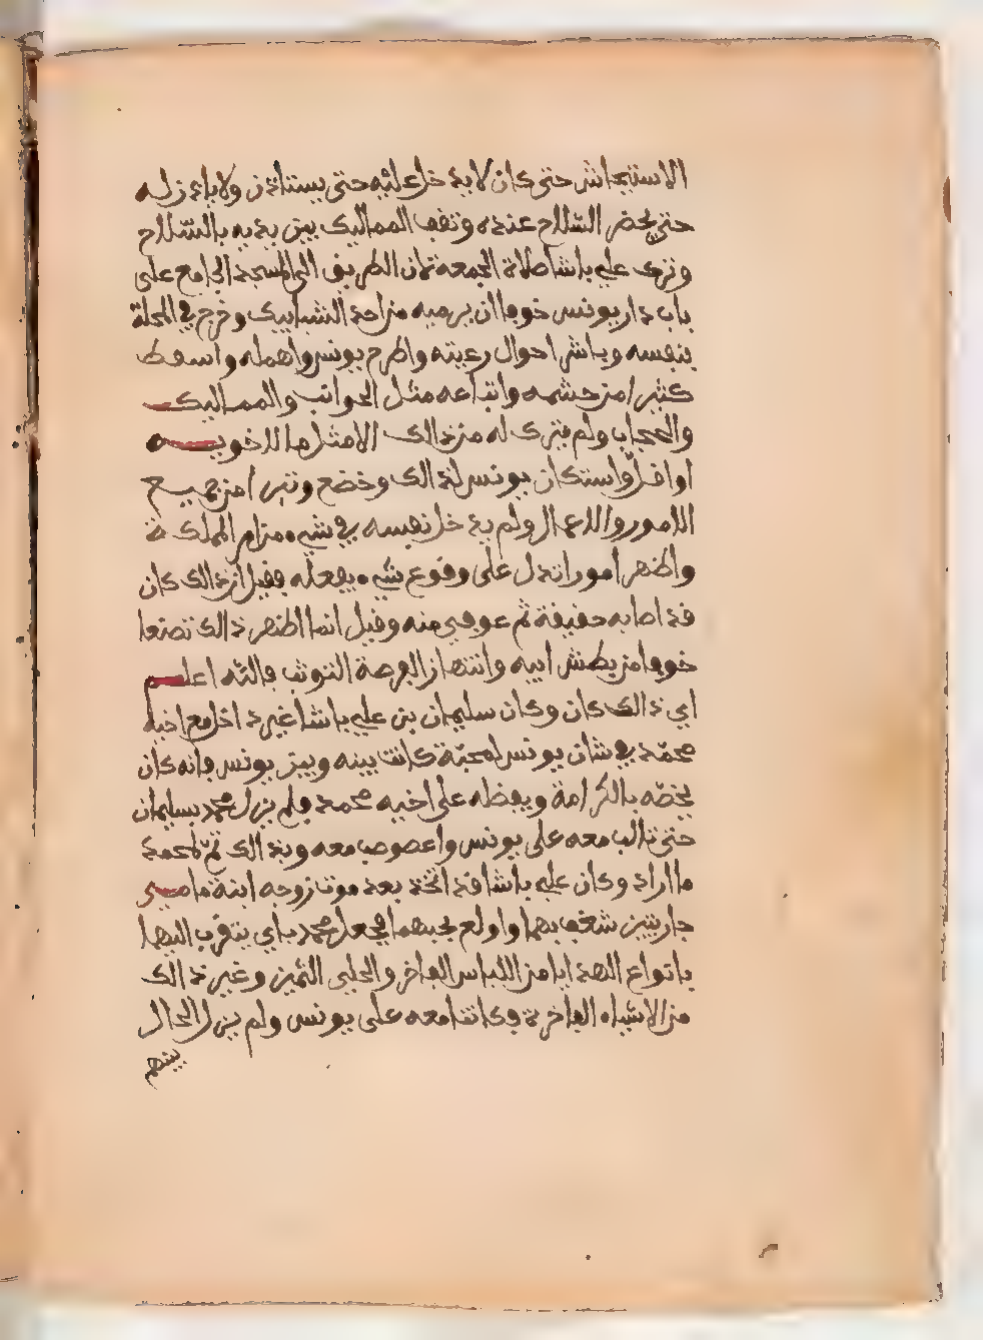 الاستيحاش حتى كان لا يدخل عليه حتى يستاذن ولا ياذن له
حتى يحضر السلاح عنده وتقف المماليك بين يديه بالسلاح
وترك علي باشا صلاة الجمعة لان الطريق الى المسجد الجامع على
باب دار يونس خوفا ان يرميه من احد الشبابيك وخرج في المحلة
بنفسه وباشر احوال رعيته واطرح يونس واهمله واسقط
كثيرا من حشمه واتباعه مثل الحوانب والمماليك
والحجاب ولم يترك له من ذالك الا مثل ما لاخويه
او اقل واستكان يونس لذالك وخضع وتبرا من جميع
الامور والاعمال ولم يدخل نفسه في شيء من امر المملكة
واظهر امورا تدل على وقوع شيء بعقله فقيل ان ذالك كان
قد اصابه حقيقة ثم عوفي منه وقيل انما اظهر ذالك تصنعا
خوفا من بطش ابيه وانتهاز الفرصة التوثب فالله اعلم
اي ذالك كان وكان سليمان بن علي باشا غير داخل مع اخيه
محمد في شان يونس لمحبة كانت بينه وبين يونس فانه كان
يخصه بالكرامة ويفضله على اخيه محمد فلم يزل محمد بسليمان
حتى تالب معه على يونس واعصوصب معه وبذالك تم لمحمد
ما اراد وكان علي باشا قد اتخذ بعد موت زوجه ابنة مامي
جاريتين شغف بهما واولع بحبهما فجعل محمد باي يتقرب اليهما
بانواع الهدايا من اللباس الفاخر والحلي الثمين وغير ذالك
من الاشياء الفاخرة فكانتا معه على يونس ولم يزل الحال
بينهم